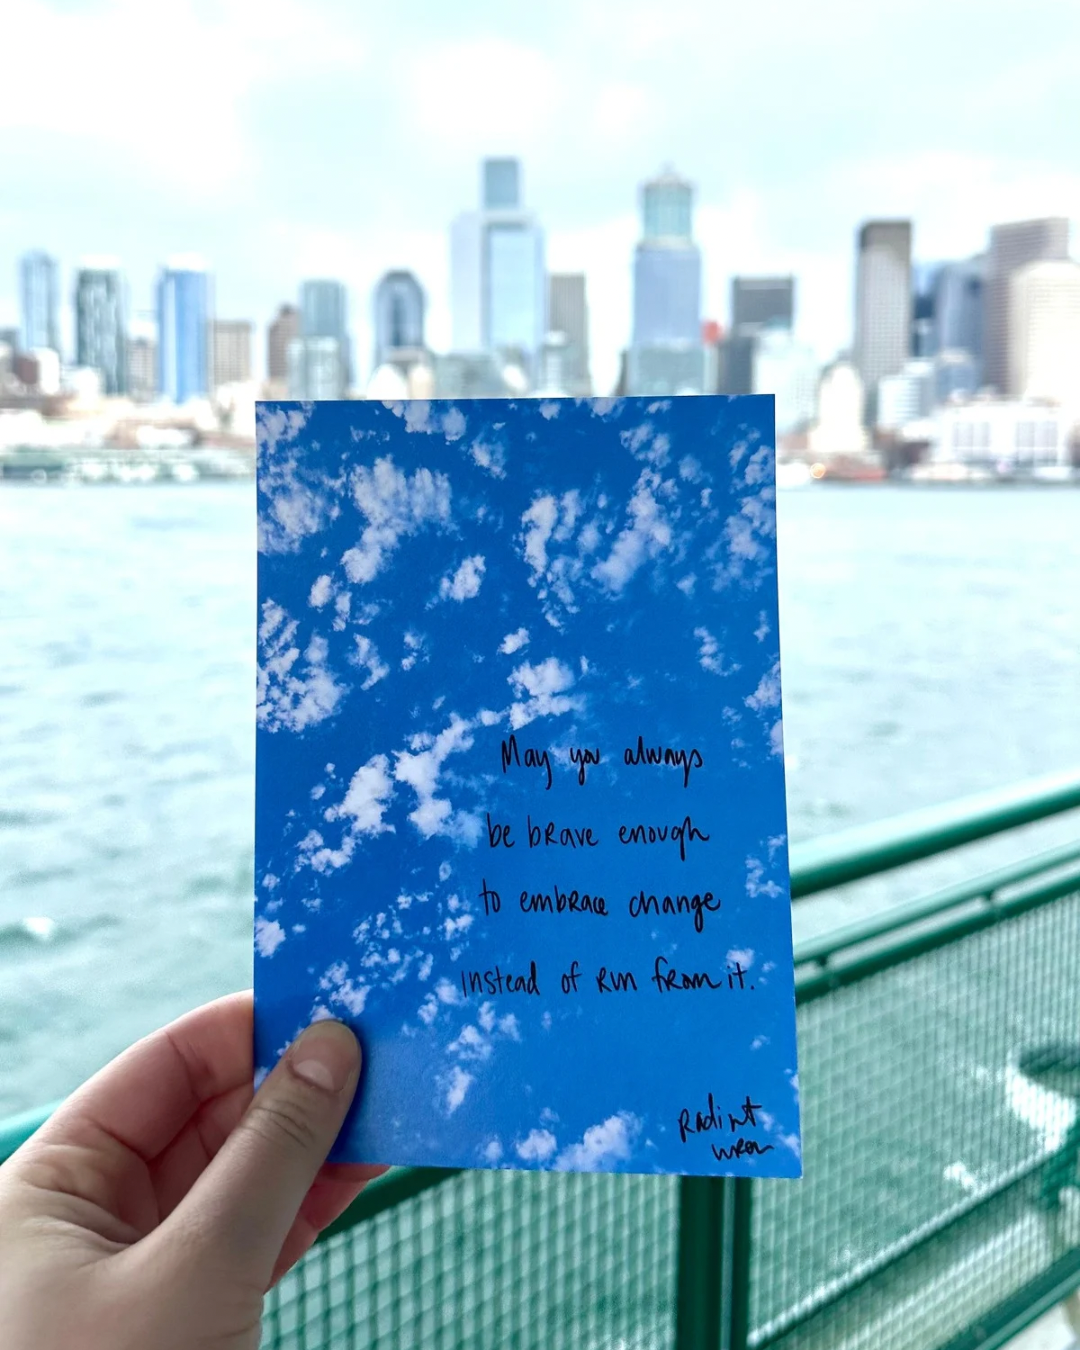 May you always
be brave enough
to embrace change
instead of run from it.